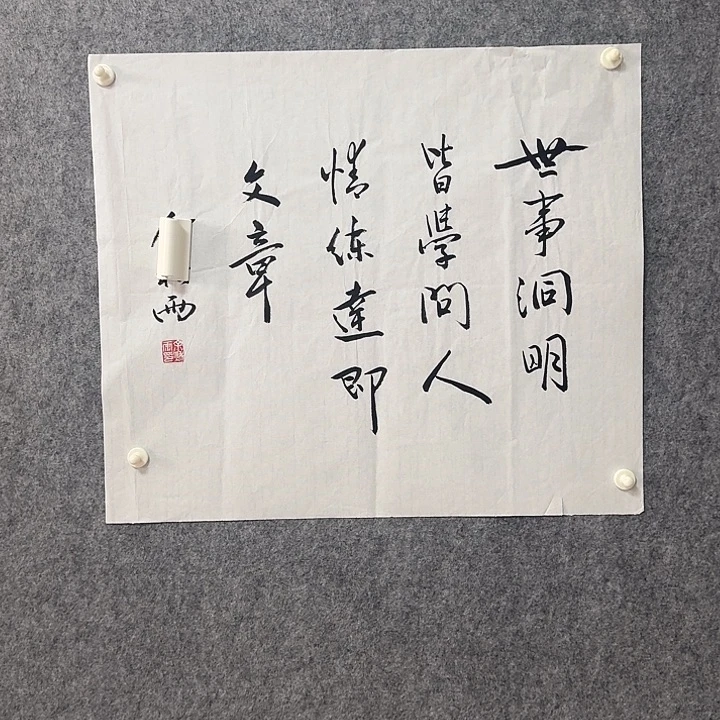 世事洞明
皆學問人
情练達即
文章
雨